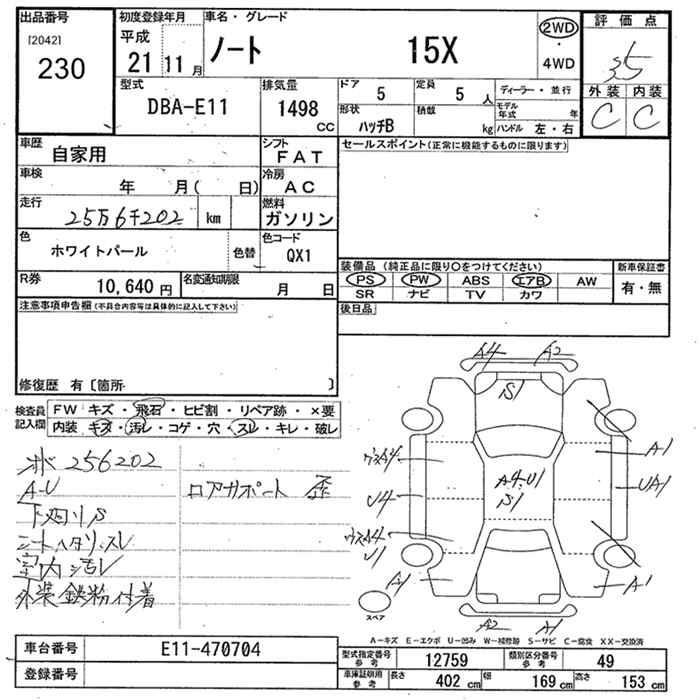 出品番号
[2042]
230
初度登録年月
平成
21 11 月
車名・グレード
ノート 15X
2WD
・
4WD
評価点
3.5
外装 内装
C C
型式
DBA-E11
排気量
1498 CC
ドア
5
定員
5 人
形状
ハッチB
積載
kg
ディーラー・並行
モデル年式 年
ハンドル 左・右
車歴
自家用
シフト
FAT
車検
年 月( 日)
冷房
AC
走行
25万6千202 km
燃料
ガソリン
色
ホワイトパール
色替
色コード
QX1
R券
10,640 円
名変通知期限
月 日
セールスポイント(正常に機能するものに限ります)
装備品 (純正品に限り○をつけてください)
PS PW ABS エアB AW
SR ナビ TV カワ
新車保証書
有・無
後日品
注意事項申告欄(不具合内容等は具体的に記入して下さい)
修復歴 有〔箇所 〕
検査員記入欄
FW キズ・飛石・ヒビ割・リペア跡・×要
内装 キズ・汚レ・コゲ・穴・スレ・キレ・破レ
256202
A-U
下廻りS
シートヘタリ・スレ
室内汚レ
外装鉄粉付着
ロアサポート 歪
A4 A2
S1
A4
U4
A4
U1
A1
A4・U1
S1
A1
UA1
A1
A2 A1
スペア
A-キズ E-エクボ U-凹み W-補修跡 S-サビ C-腐食 XX-交換済
車台番号
E11-470704
登録番号
型式指定番号
参考
12759
類別区分番号
参考
49
車庫証明用
参考
長さ 402 cm 幅 169 cm 高さ 153 cm